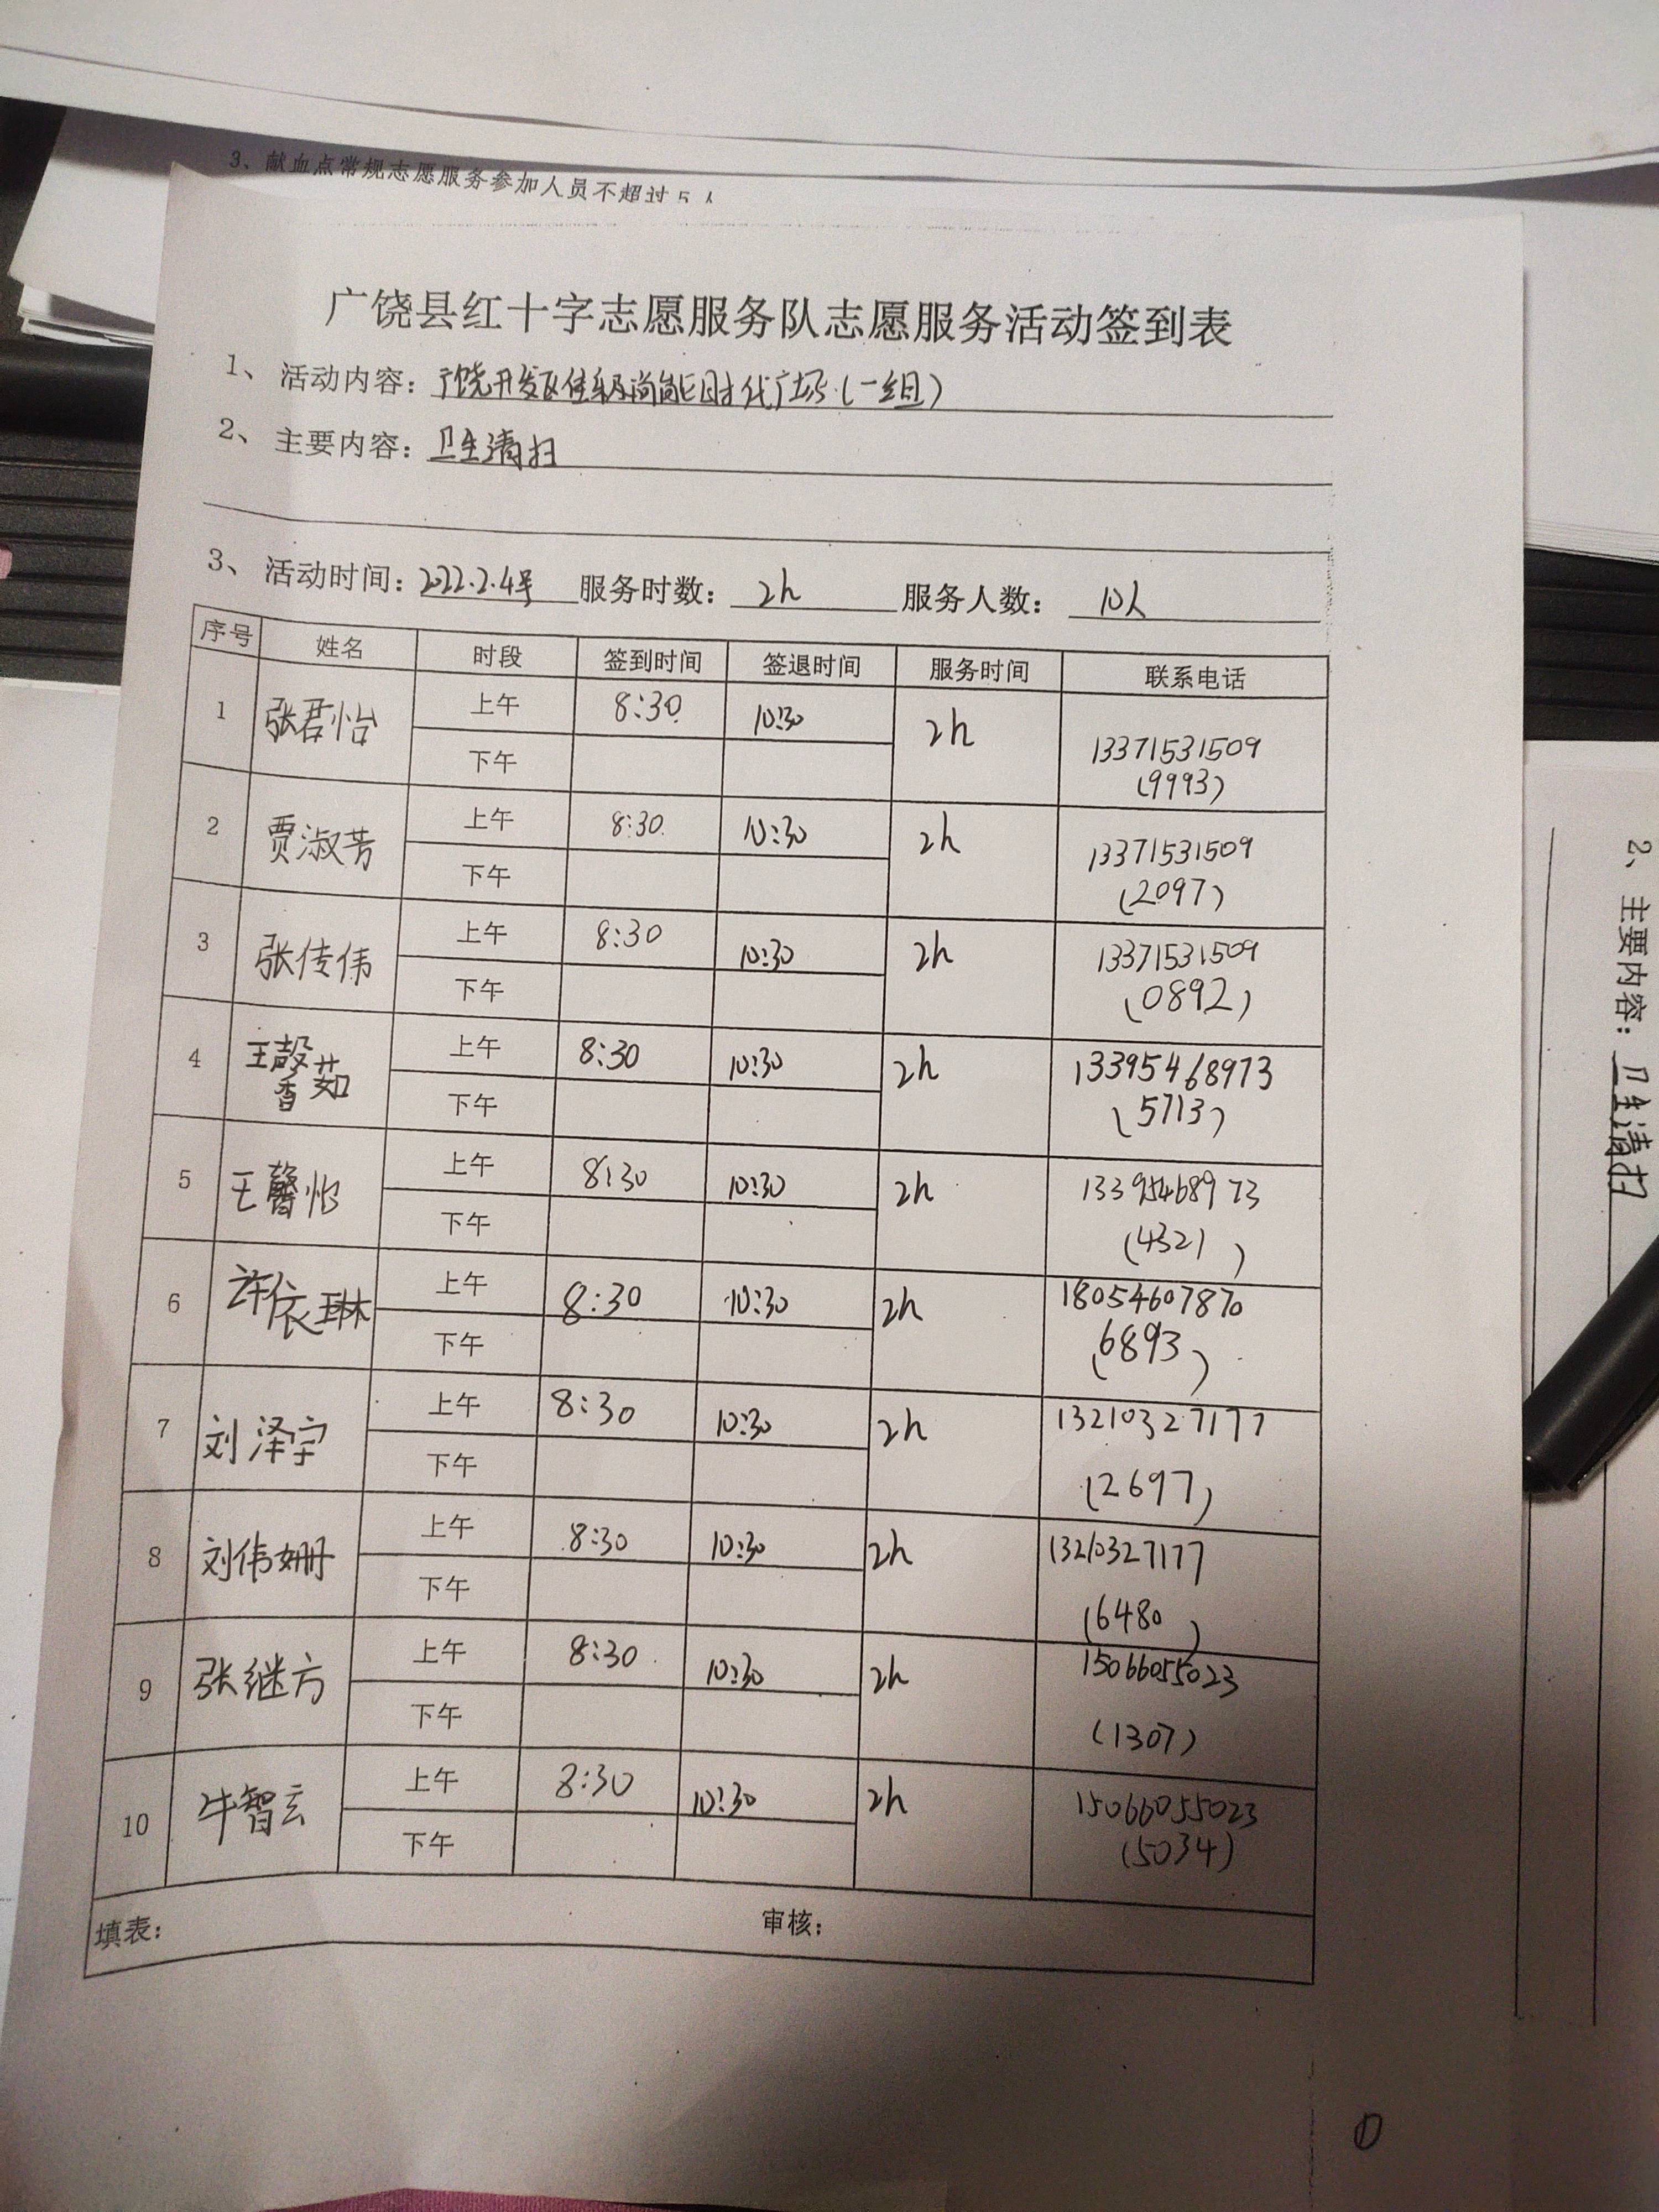 3、献血点常规志愿服务参加人员不超过5人
广饶县红十字志愿服务队志愿服务活动签到表
1、活动内容：广饶开发区佳纸尚能时代广场（一组）
2、主要内容：卫生清扫
3、活动时间：2022.2.4号 服务时数：2h 服务人数：10人
序号 姓名 时段 签到时间 签退时间 服务时间 联系电话
1 张君怡 上午 8:30 10:30 2h 13371531509
下午 (9993)
2 贾淑芳 上午 8:30 10:30 2h 13371531509
下午 (2097)
3 张传伟 上午 8:30 10:30 2h 13371531509
下午 (0892)
4 王馨茹 上午 8:30 10:30 2h 13395468973
下午 (5713)
5 王馨怡 上午 8:30 10:30 2h 13395468973
下午 (4321)
6 许依琳 上午 8:30 10:30 2h 18054607870
下午 (6893)
7 刘泽宇 上午 8:30 10:30 2h 13210327177
下午 (2697)
8 刘伟姗 上午 8:30 10:30 2h 13210327177
下午 (6480)
9 张继方 上午 8:30 10:30 2h 15066055023
下午 (1307)
10 牛智云 上午 8:30 10:30 2h 15066055023
下午 (5034)
填表： 审核：
①
2、主要内容：卫生清扫